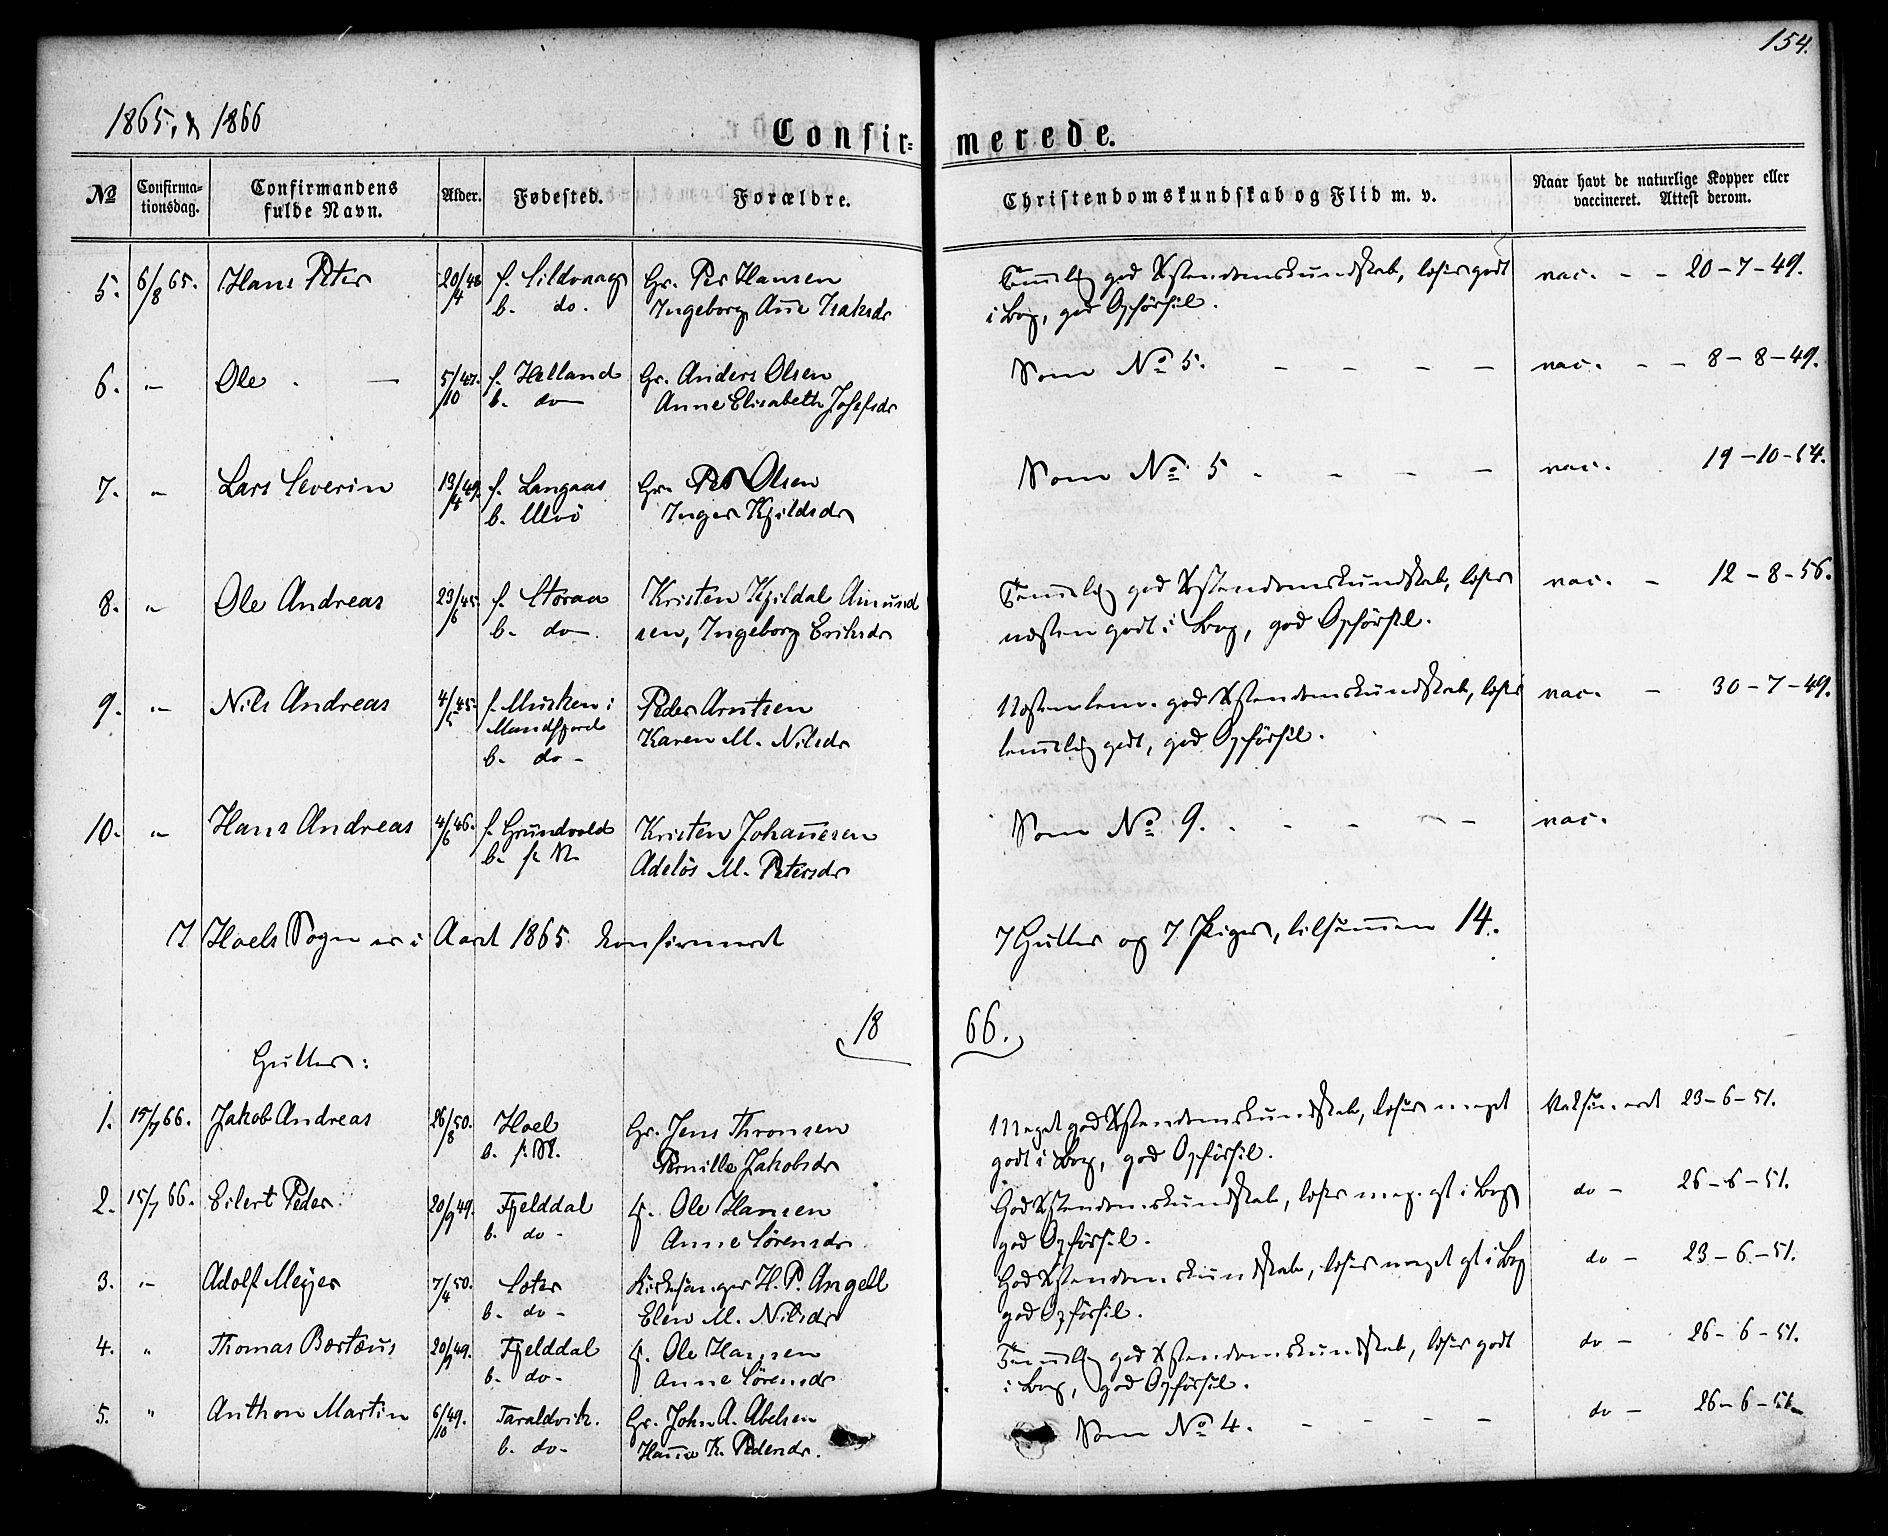 154.
1865, & 1866
Confir- merede.
No Confirma- tionsdag. Confirmandens fulde Navn. Alder. Fødested. Forældre. Christendomskundskab og Flid m. v. Naar havt de naturlige Kopper eller vaccineret. Attest derom.
5. 6/8 65. Hans Peter 20/4 48 f. Sildvaag Gr. Per Hansen Temmelig god Xstendomskundskab, læser godt vac. - - 20-7-49.
b. do. Ingeborg Anne Isaksdr i Bog, god Opførsel.
6. " Ole - 5/10 47. f. Helland Gr. Anders Olsen Som No 5. - - - - vac. - - 8-8-49.
b. do Anne Elisabeth Josefsdr
7. " Lars Severin 13/4 49. f. Langaas Gr. Per Olsen Som No 5 - - - - vac. 19-10-54.
b. Ulvö Inger Kjildsdr
8. " Ole Andreas 23/6 45. f. Storaa Kristen Kjildal Amund Temmelig god Xstendomskundskab, læser vac. - 12-8-56.
b. do sen, Ingeborg Eriksdr næsten godt i Bog, god Opførsel.
9. " Nils Andreas 4/5 45. f. Musken i Peder Arntsen Næsten tem. god Xstendomskundskab, læser vac. - 30-7-49.
Mandfjord Karen M. Nilsdr temmelig godt, god Opførsel.
b. do -
10. " Hans Andreas 4/6 46. f. Grundvold Kristen Johannesen Som No 9. - - - - - vac.
b. f. N. Adelös M. Petersdr
I Hoels Sogn er i Aaret 1865 konfirmeret 7 Gutter og 7 Piger, tilsammen 14.
18 66.
Gutter:
1. 15/7 66. Jakob Andreas 26/8 50. Hoel Gr. Jens Thronsen Meget god Xstendomskundskab, læser meget Vaksineret 23-6-51.
b. f. N. Pernille Jakobsdr godt i Bog, god Opførsel.
2. 15/7 66. Eilert Peder 20/9 49. Fjelddal f. Ole Hansen God Xstendomskundskab, læser meg. gt i Bog do - 26-6-51.
b. do - Anne Sörensdr. god Opførsel.
3. " Adolf Meÿer 7/4 50. Soter Kirkesanger H. P. Angell God Xstendomskundskab, læser meget gt i Bog do - 23-6-51.
b. do - Elen M. Nilsdr god Opførsel.
4. " Thomas Bærtæus 20/9 49. Fjelddal f. Ole Hansen Temmelig god Xstendomskundskab, læser godt do - 26-6-51.
b. do- Anne Sörensdr i Bog, god Opførsel.
5. " Anthon Martin 6/10 49. Taraldvik. Gr. John A. Abelsen Som No 4. - - - - do - 26-6-51.
b. do- Hanna K. Pedersdr.